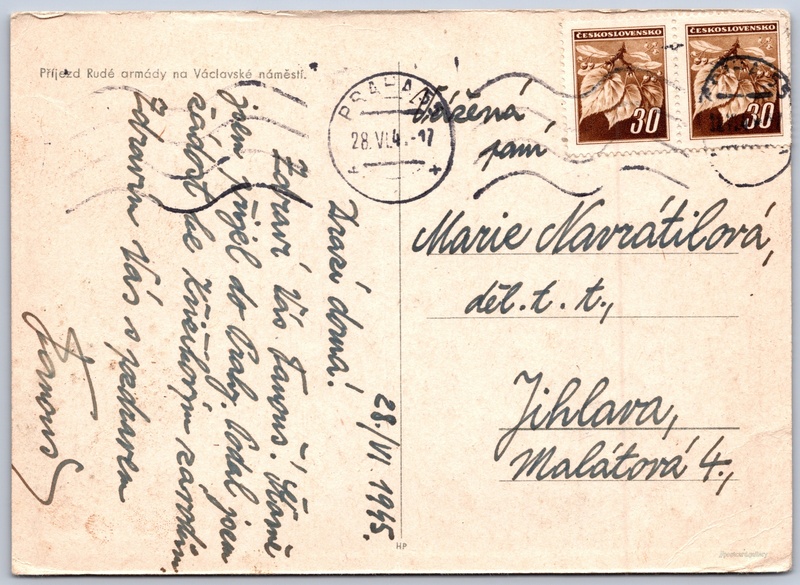 Příjezd Rudé armády na Václavské náměstí.
ČESKOSLOVENSKO
30
ČESKOSLOVENSKO
30
PRAHA
28.VI.4 .-17
Vážená
paní
Marie Navrátilová,
děl. t. t.,
Jihlava,
Malátová 4.,
28./VI. 1945.
Drazí doma!
Zdraví Vás Šťastně
jsem přijel do Prahy. Podal jsem
žádost se
Zdravím Vás s pozdravem
HP